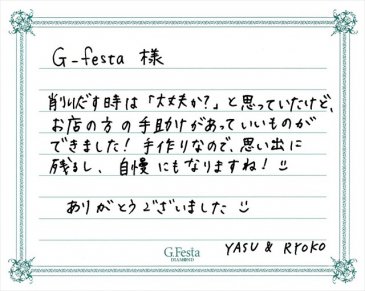 G-festa 様
削りだす時は「大丈夫か?」と思っていたけど、
お店の方の手助けがあっていいものが
できました!手作りなので、思い出に
残るし、自慢にもなりますね!
ありがとうございました
YASU & RYOKO
G.Festa
DIAMOND